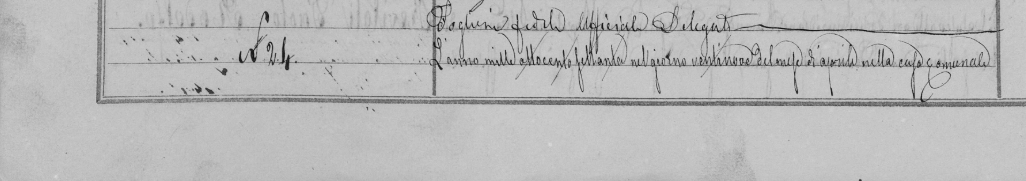 Foglieni Fedele Ufficiale Delegat
N° 24. L'anno mille ottocento settanta nel giorno ventinove del mese di aprile nella casa Comunale